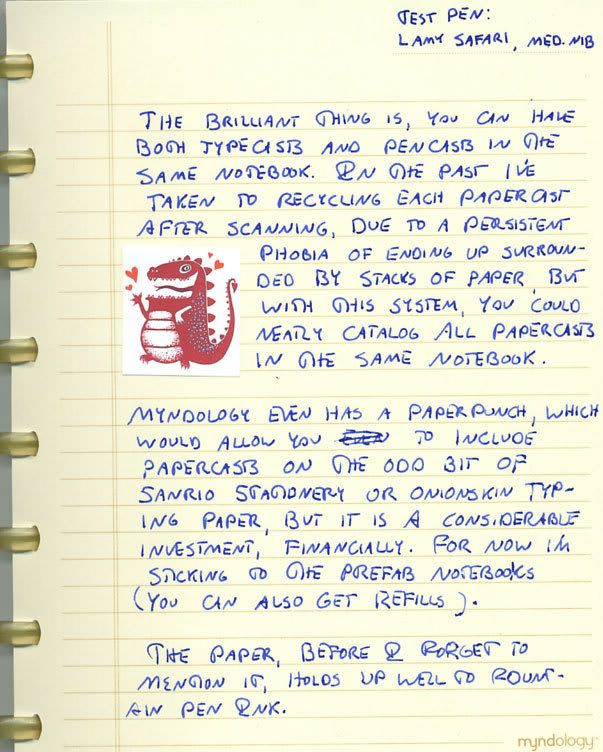 TEST PEN:
LAMY SAFARI, MED. NIB
THE BRILLIANT THING IS, YOU CAN HAVE
BOTH TYPECASTS AND PENCASTS IN THE
SAME NOTEBOOK. IN THE PAST I'VE
TAKEN TO RECYCLING EACH PAPERCAST
AFTER SCANNING, DUE TO A PERSISTENT
PHOBIA OF ENDING UP SURROUN-
DED BY STACKS OF PAPER, BUT
WITH THIS SYSTEM, YOU COULD
NEATLY CATALOG ALL PAPERCASTS
IN THE SAME NOTEBOOK.
MYNDOLOGY EVEN HAS A PAPERPUNCH, WHICH
WOULD ALLOW YOU TO INCLUDE
PAPERCASTS ON THE ODD BIT OF
SANRIO STATIONERY OR ONIONSKIN TYP-
ING PAPER, BUT IT IS A CONSIDERABLE
INVESTMENT, FINANCIALLY. FOR NOW I'M
STICKING TO THE PREFAB NOTEBOOKS
(YOU CAN ALSO GET REFILLS).
THE PAPER, BEFORE I FORGET TO
MENTION IT, HOLDS UP WELL TO FOUNT-
AIN PEN INK.
myndology